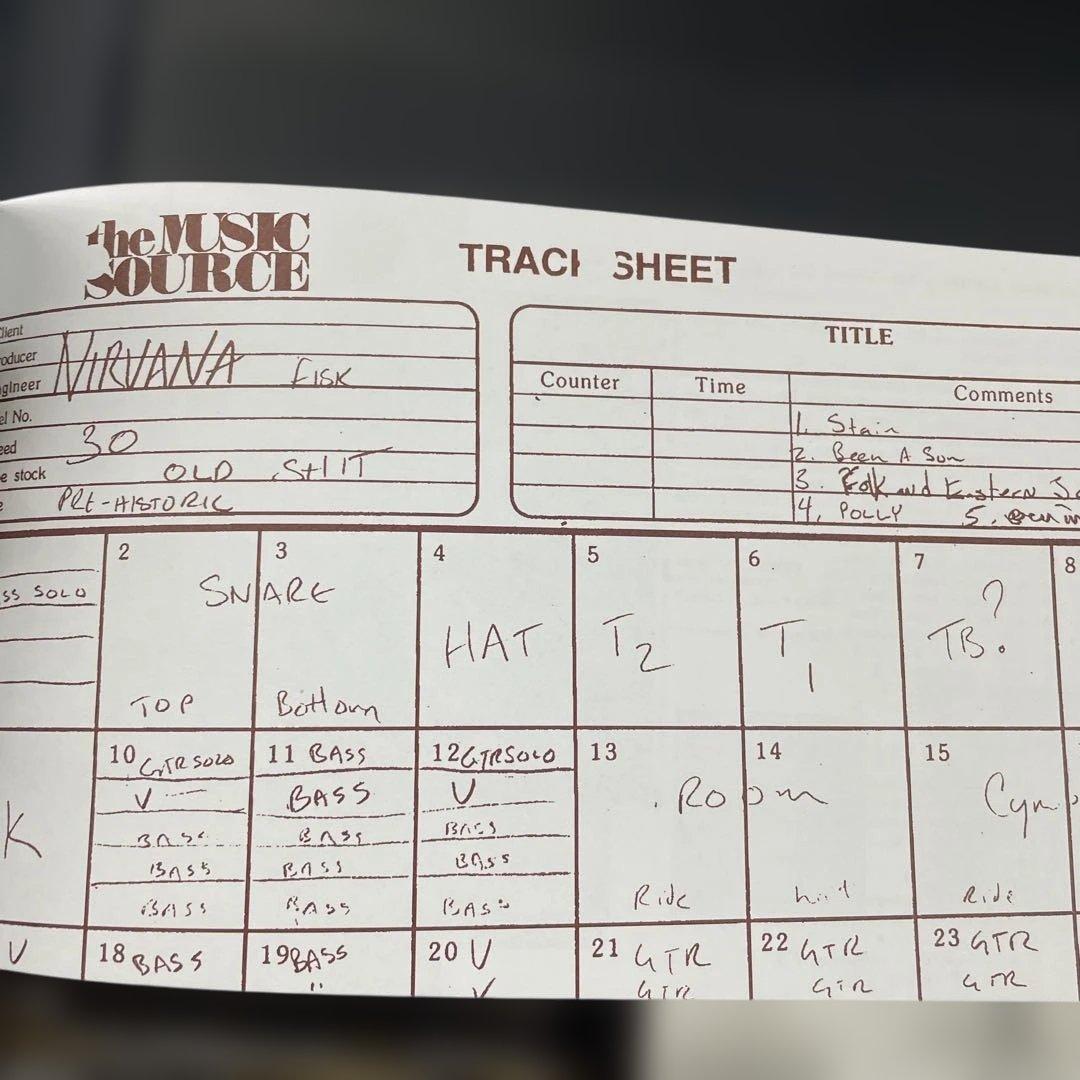 the MUSIC
SOURCE
TRACK SHEET
Client
Producer
Engineer
NIRVANA FISK
el No.
eed 30
e stock OLD SHIT
e PRE-HISTORIC
TITLE
Counter Time Comments
1. Stain
2. Been A Son
3. Folk and Eastern
4. POLLY 5.
2 3 4 5 6 7 8
SNARE
ss SOLO
HAT T2 T1 TB?
TOP Bottom
10 GTR SOLO 11 BASS 12 GTR SOLO 13 14 15
V BASS V Room Cym
BASS BASS BASS
K
BASS BASS BASS
BASS BASS BASS Ride Ride
V 18 BASS 19 BASS 20 V 21 GTR 22 GTR 23 GTR
" V GTR GTR GTR